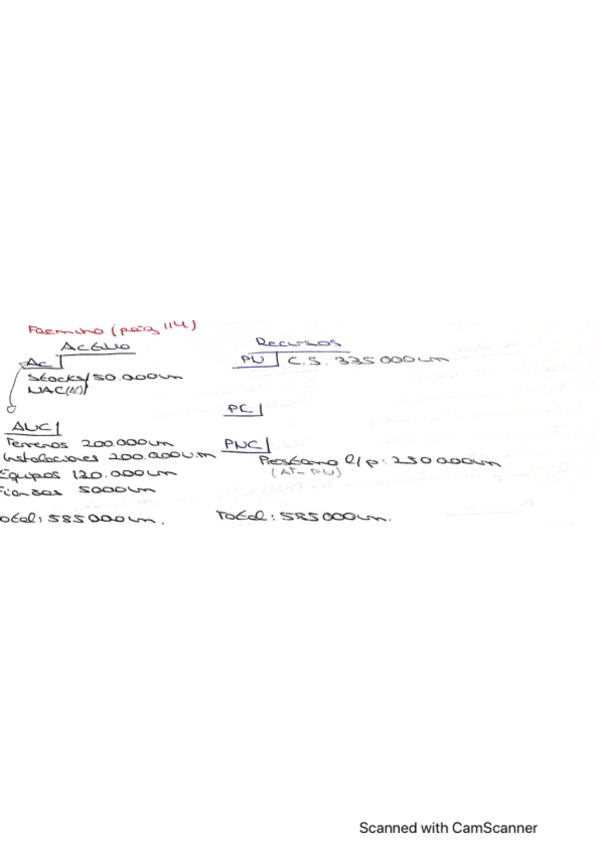 Farmino (pág 114)
Activo
Recursos
AC
PN C.S. 335000um
Stocks/ 50.000um
NAC(N)
PC
ANC
Terrenos 200.000um
PNC
Instalaciones 200.000u.m
Préstamo l/p: 250000um
Equipos 120.000um
(AT-PN)
Fianzas 5000um
otal: 585000um.
Total: 585000um.
Scanned with CamScanner